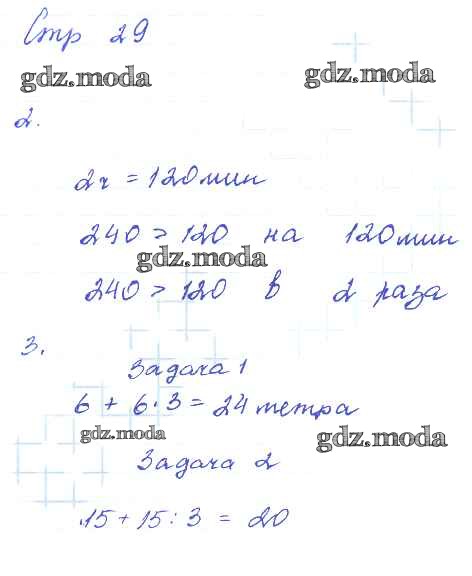 Стр 29
gdz.moda gdz.moda
2.
2ч = 120 мин
240 > 120 на 120 мин
gdz.moda
240 > 120 в 2 раза
3.
Задача 1
6 + 6 · 3 = 24 метра
gdz.moda gdz.moda
Задача 2
15 + 15 : 3 = 20